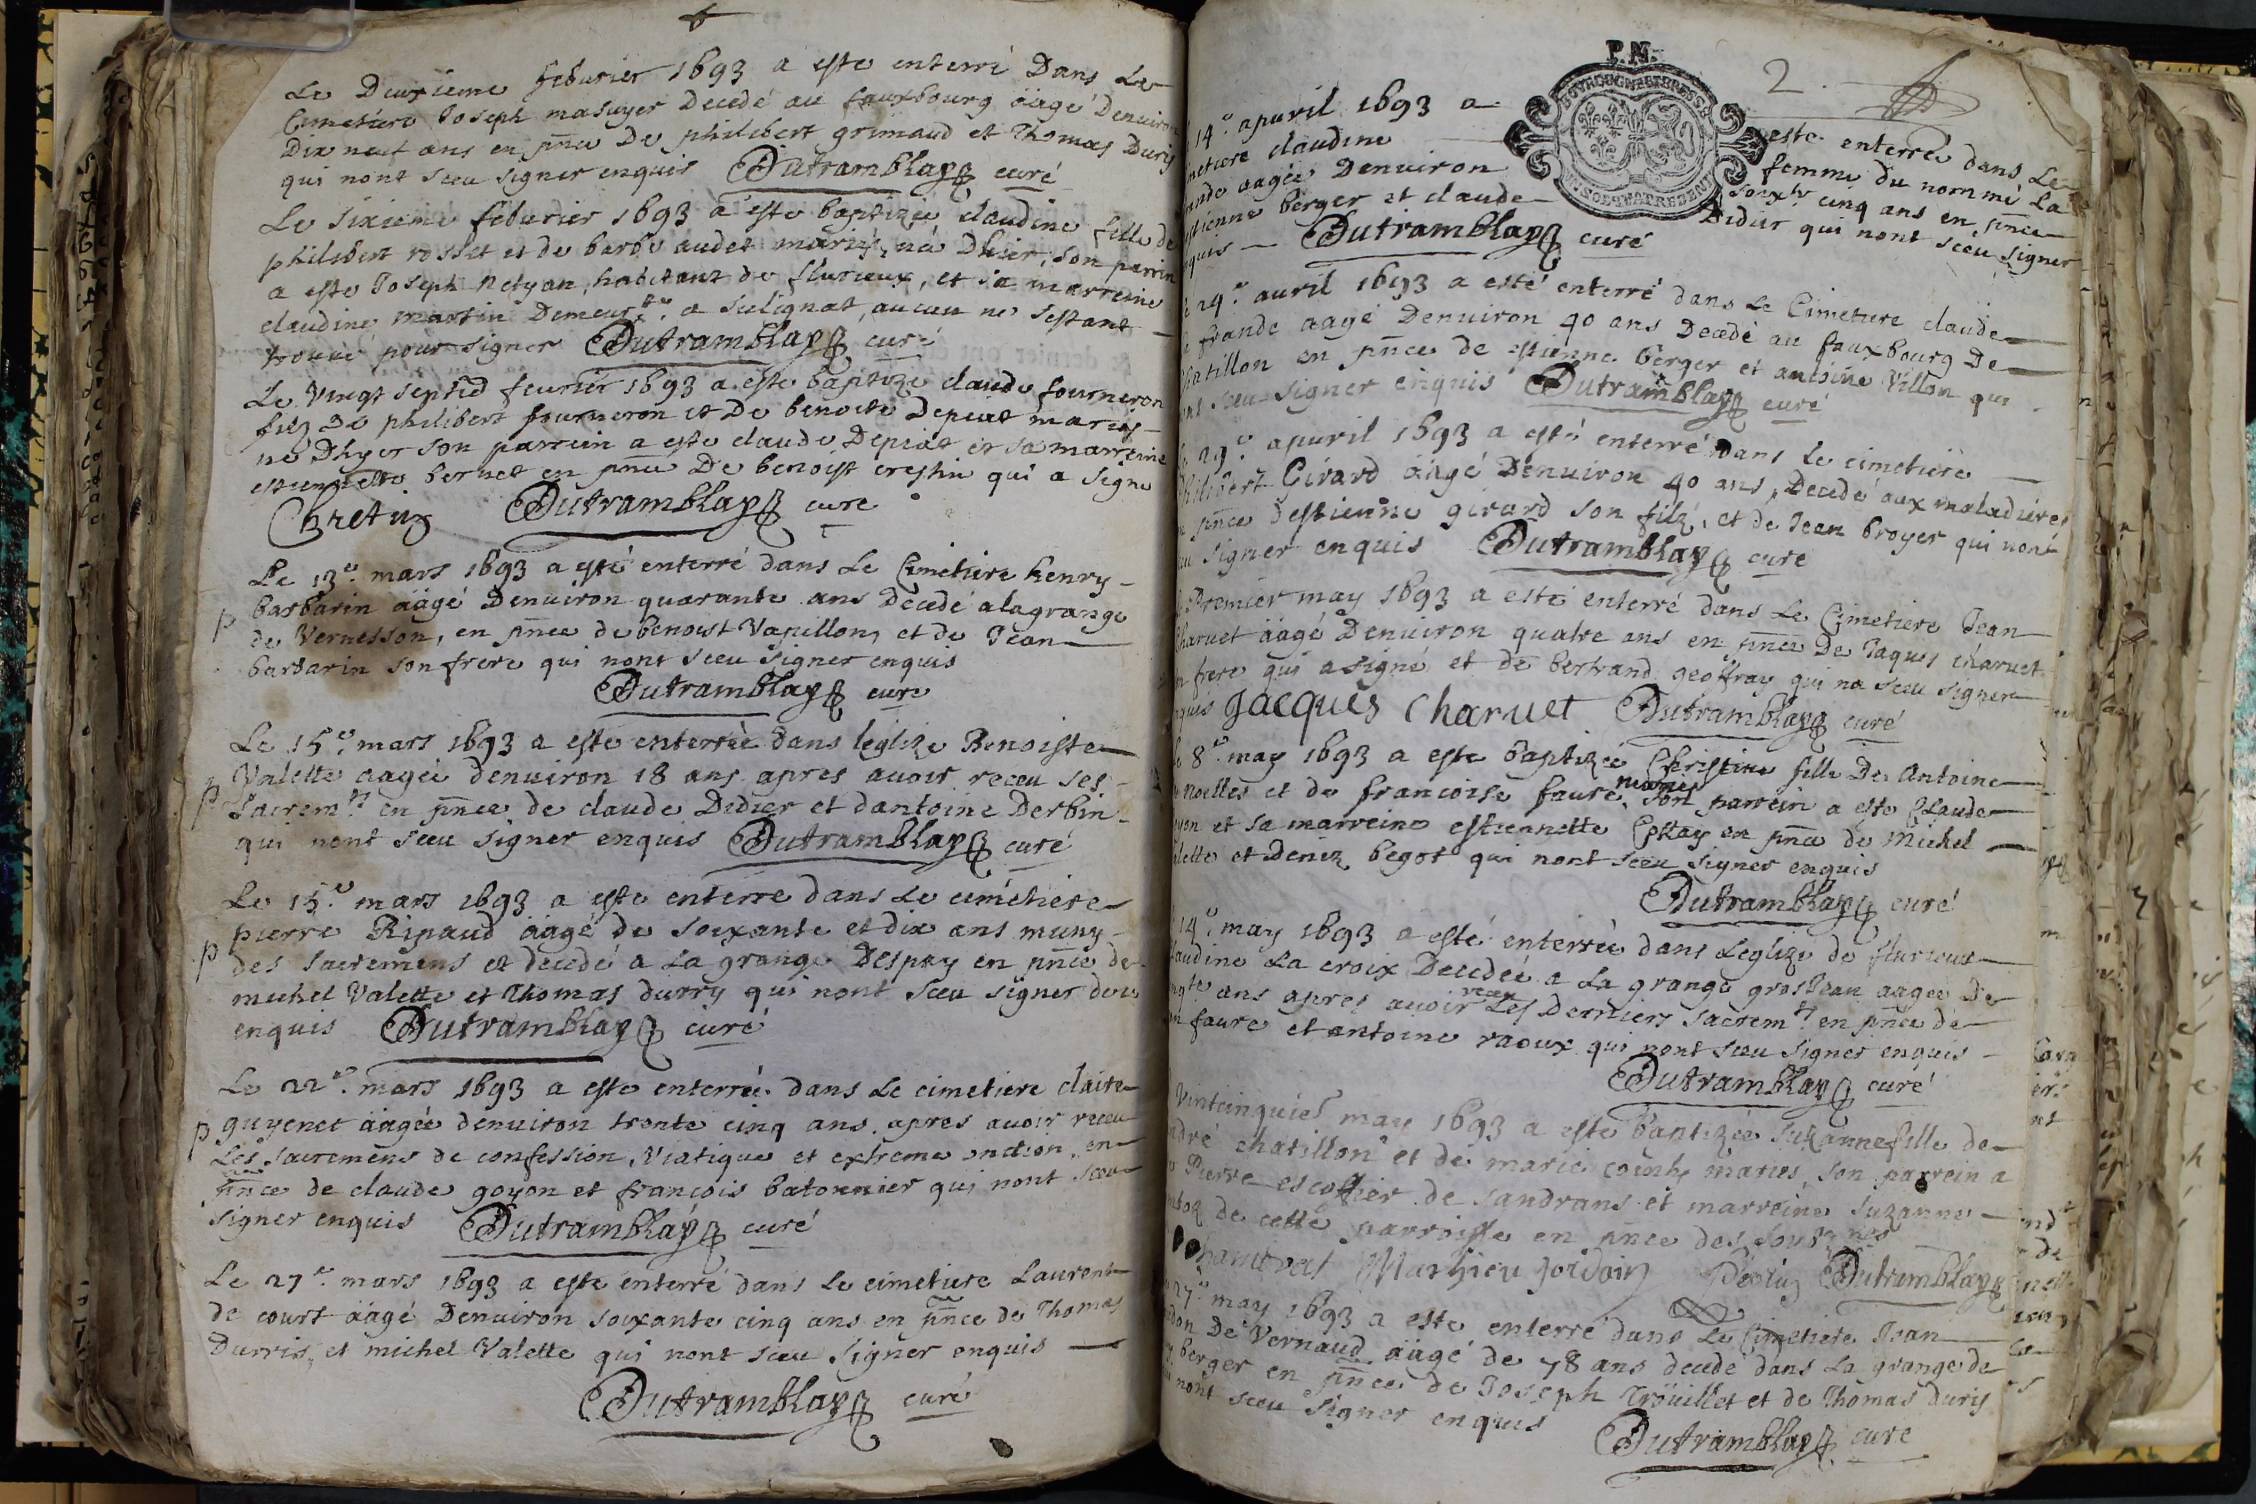 Le Deuxieme feburier 1693 a este enterré Dans Le
Cimetiere Joseph masuyer Decedé au fauxbourg äagé Denuiron
Dix neuf ans en pñce De philibert grimaud et Thomas Duris
qui nont sceu signer enquis Dutramblay curé
Le sixieme feburier 1693 a este baptizée claudine fille de
philibert rosset et de barbe audet mariés, née Dhier, son parrin
a este Joseph Netyan, habitant de flurieux, et sa marreine
claudine martin Demeurte. a sulignat, aucun ne sestant
trouvé pour signer Dutramblay curé
Le Vingt septie feurier 1693 a este baptize claude fourneron
filz De philibert fourneron et De benoite Depiat mariés
né Dhyer son parrein a este claude Depiat et sa marreine
estiennette bernet en pñce De benoist crestin qui a signé
Chretin Dutramblay curé
Le 13e. mars 1693 a esté enterré dans Le Cimetiere henry
barbarin äagé Denuiron quarante ans Decedé a la grange
de Vernesson, en pñce de benoist Vapillon et de Jean
barbarin son frere qui nont sceu signer enquis
Dutramblay curé
Le 15e. mars 1693 a este enterrée dans leglize Benoiste
p Valette aagée denuiron 18 ans apres auoir receu ses
sacremts en pñce de claude Didier et dantoine Derbin
qui nont sceu signer enquis Dutramblay curé
Le 15e. mars 1693 a este enterre dans Le cimetiere
p pierre Ripaud äagé de soixante et dix ans muny
des sacremens et decedé a La grange Despey en pñce de
michel Valette et Thomas durry qui nont sceu signer de ce
enquis Dutramblay curé
Le 22e. mars 1693 a este enterrée dans Le cimetiere claire
p guyenet äagée denuiron trente cinq ans apres auoir receu
Les sacremens de confession, Viatique et extreme onction, en
pñce de claude goyon et francois batonnier qui nont sceu
signer enquis Dutramblay curé
Le 27e. mars 1693 a este enterré dans Le cimetiere Laurent
de court äagé Denuiron soixante cinq ans en pñce de Thomas
Durris, et michel Valette qui nont sceu signer enquis
Dutramblay curé
P.M.
2.
14e. apuril 1693 a este enterrée dans Le
metiere claudine femme du nommé La
ande aagée Denuiron soixte cinq ans en pñce
estienne berger et claude Didier qui nont sceu signer
nquis Dutramblay curé
24e. auril 1693 a esté enterré dans Le Cimetiere claude
frande aagé Denuiron 40 ans Decedé au fauxbourg De
hatillon en pñce de estienne berger et antoine Villon qui
ont sceu signer enquis Dutramblay curé
29e. apuril 1693 a esté enterré dans Le cimetiere
philibert Girard äagé Denuiron 40 ans, Decedé aux maladieres
pñce Destienne girard son filz, et de Jean broyer qui nont
signer enquis Dutramblay curé
Premier may 1693 a esté enterré dans Le Cimetiere Jean
Charuet äagé Denuiron quatre ans en pñce De Jaques charuet
frere qui a signé et de bertrand geoffray qui na sceu signer
enquis Jacques Charuet Dutramblay curé
8e. may 1693 a este baptizée Christine fille De Antoine
noelles et de francoise faure mariés, son parrein a este Claude
yon et sa marreine estiennette en pñce de Michel
alette et Deniz begot qui nont sceu signer enquis
Dutramblay curé
14e. may 1693 a esté enterrée dans Leglize de flurieux
laudine La croix Decedeé a La grange grosJean aagee De
ans apres auoir receu Les Derniers sacremts en pñce de
faure et antoine raoux qui nont sceu signer enquis
Dutramblay curé
Vintcinquie may 1693 a este baptizée Suzanne fille de
ndré chatillon et de marie mariés, son parrein a
Pierre escoffier de sandrans et marreine Suzanne
de cette parroisse en pñce des sousnes
Mathieu Jordain Dutramblay
27e. may 1693 a este enterré dans Le Cimetiere Jean
De Vernaud äagé de 78 ans decedé dans La grange de
berger en pñce de Joseph Trouillet et de Thomas Duris
nont sceu signer enquis Dutramblay curé